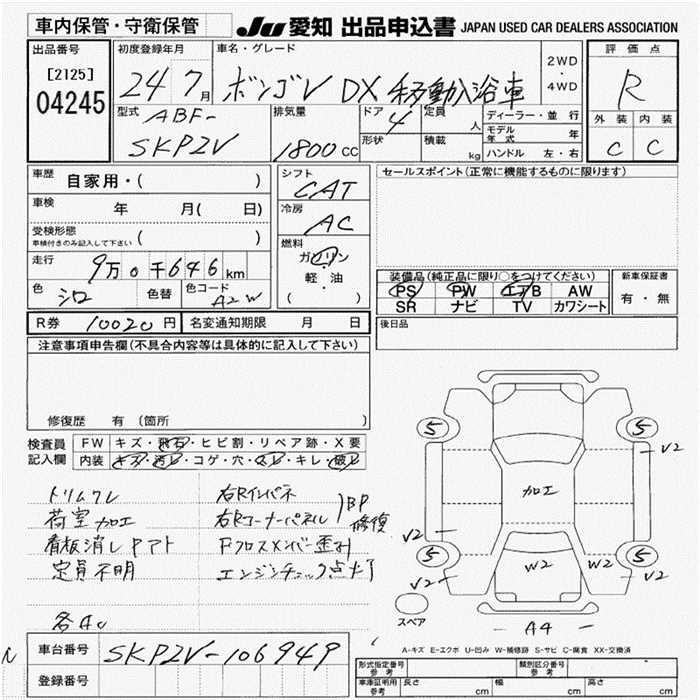 車内保管・守衛保管
JU 愛知 出品申込書 JAPAN USED CAR DEALERS ASSOCIATION
出品番号
[2125]
04245
初度登録年月
24 7月
車名・グレード
ボンゴV DX 移動入浴車
2WD
・
4WD
評価点
R
外装 内装
C C
型式
ABF-
SKP2V
排気量
1800cc
ドア 4
形状
定員 人
積載 kg
ディーラー・並行
モデル年式 年
ハンドル 左・右
車歴 自家用・( )
車検 年 月( 日)
受検形態
車検付きのみ記入して下さい ( )
走行 9万0千646km
色 シロ 色替 色コード A2W
シフト
CAT
冷房
AC
燃料
ガソリン
・
軽・油
( )
セールスポイント(正常に機能するものに限ります)
装備品(純正品に限り○をつけてください)
PS PW エアB AW
SR ナビ TV カワシート
新車保証書
有・無
R券 10020円 名変通知期限 月 日
後日品
注意事項申告欄(不具合内容等は具体的に記入して下さい)
修復歴 有 (箇所 )
検査員記入欄
FW キズ・飛石・ヒビ割・リペア跡・X要
内装 キズ・汚レ・コゲ・穴・スレ・キレ・破レ
トリムクレ
荷室加工
看板消しPアト
定員不明
各AU
右Rインパネ
右Rコーナーパネル
BP修復
Fクロスメンバー歪み
エンジンチェック点灯
5 5
V2
加工
V2
5 W2 W2 5
V2 V2
スペア
A4
A-キズ E-エクボ U-凹み W-補修跡 S-サビ C-腐食 XX-交換済
車台番号 SKP2V-106949
登録番号
形式指定番号 参考
類別区分番号 参考
車庫証明用 参考 長さ cm 幅 cm 高さ cm